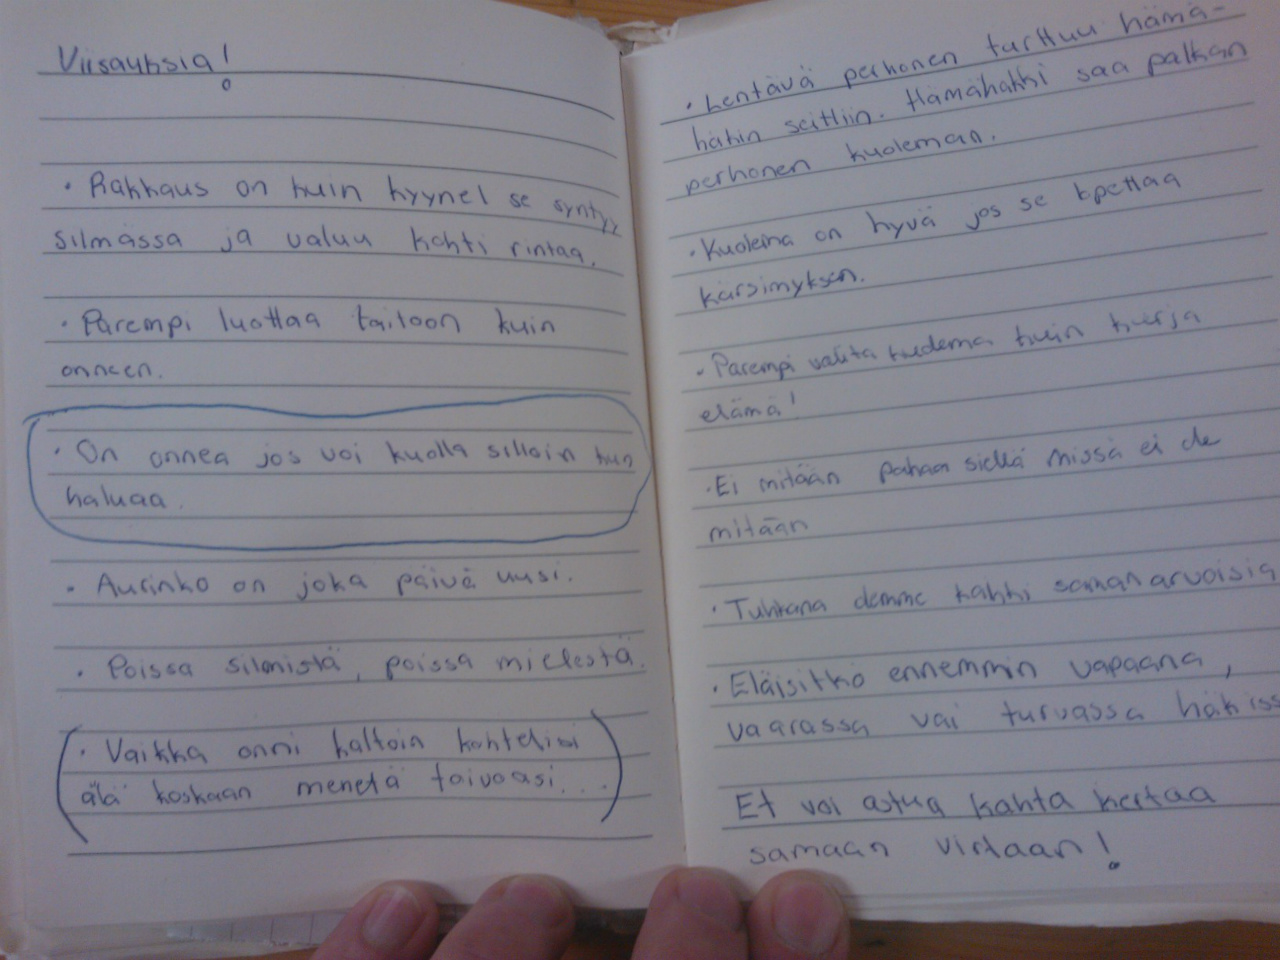 Viisauksia!
· Rakkaus on kuin kyynel se syntyy
silmässä ja valuu kohti rintaa.
· Parempi luottaa taitoon kuin
onneen.
· On onnea jos voi kuolla silloin kun
haluaa.
· Aurinko on joka päivä uusi.
· Poissa silmistä, poissa mielestä.
(· Vaikka onni kaltoin kohtelisi
älä koskaan menetä toivoasi...)
· Lentävä perhonen tarttuu hämä-
häkin seittiin. Hämähäkki saa palkan
perhonen kuoleman.
· Kuolema on hyvä jos se lopettaa
kärsimyksen.
· Parempi valita kuolema kuin kurja
elämä!
· Ei mitään pahaa siellä missä ei ole
mitään
· Tuhkana olemme kaikki samanarvoisia
· Eläisitkö ennemmin vapaana,
vaarassa vai turvassa häkiss
Et voi astua kahta kertaa
samaan virtaan!